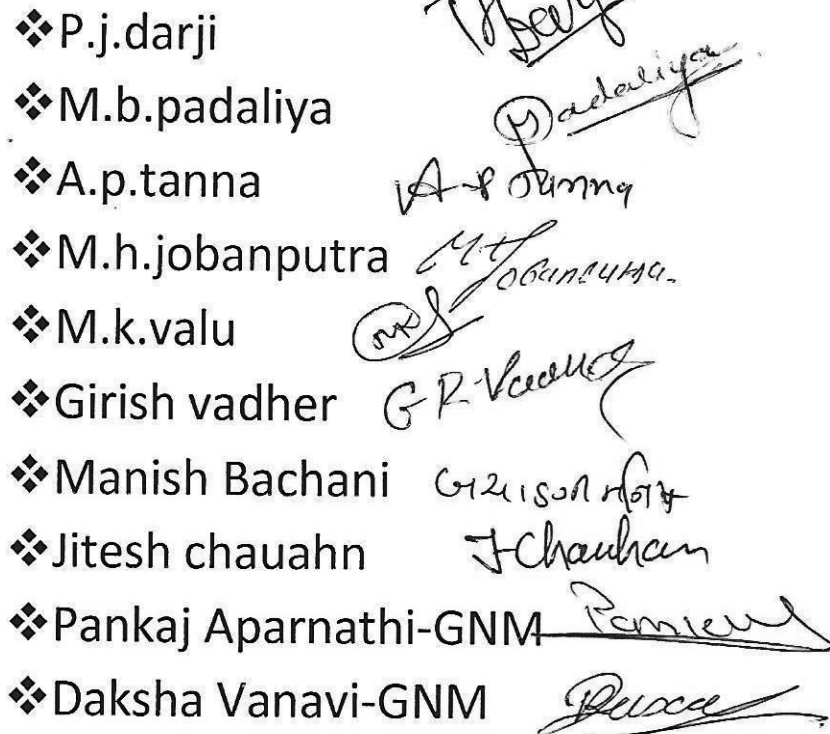 ❖P.j.darji
❖M.b.padaliya Padaliya
❖A.p.tanna A.P Tanna
❖M.h.jobanputra
❖M.k.valu
❖Girish vadher G R.
❖Manish Bachani
❖Jitesh chauahn J Chauhan
❖Pankaj Aparnathi-GNM
❖Daksha Vanavi-GNM